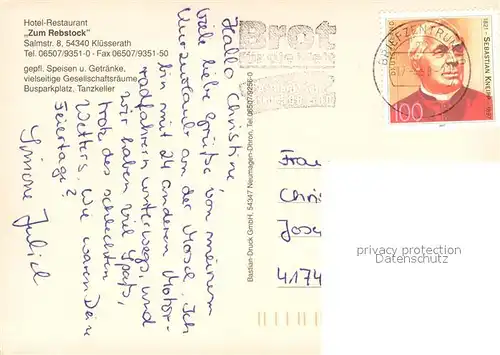 Hotel-Restaurant
„Zum Rebstock"
Salmstr. 8, 54340 Klüsserath
Tel. 06507/9351-0 - Fax 06507/9351-50
gepfl. Speisen u. Getränke,
vielseitige Gesellschaftsräume,
Busparkplatz, Tanzkeller
Hallo Christine,
viele liebe Grüsse von meinem
Kurzurlaub an der Mosel. Ich
bin mit 24 anderen Motor-
radfahrern unterwegs, und
wir haben viel Spaß,
trotz des schlechten
Wetters. Wie waren Deine
Feiertage?
Simone
Bastian Druck GmbH, 54347 Neumagen-Dhron, Tel. 06507/9256-0
Brot
für die Welt
BRIEFZENTRUM
SEBASTIAN KNEIPP
1821 - 1897
100
Frau
Chris
Jose
4174
privacy protection
Datenschutz